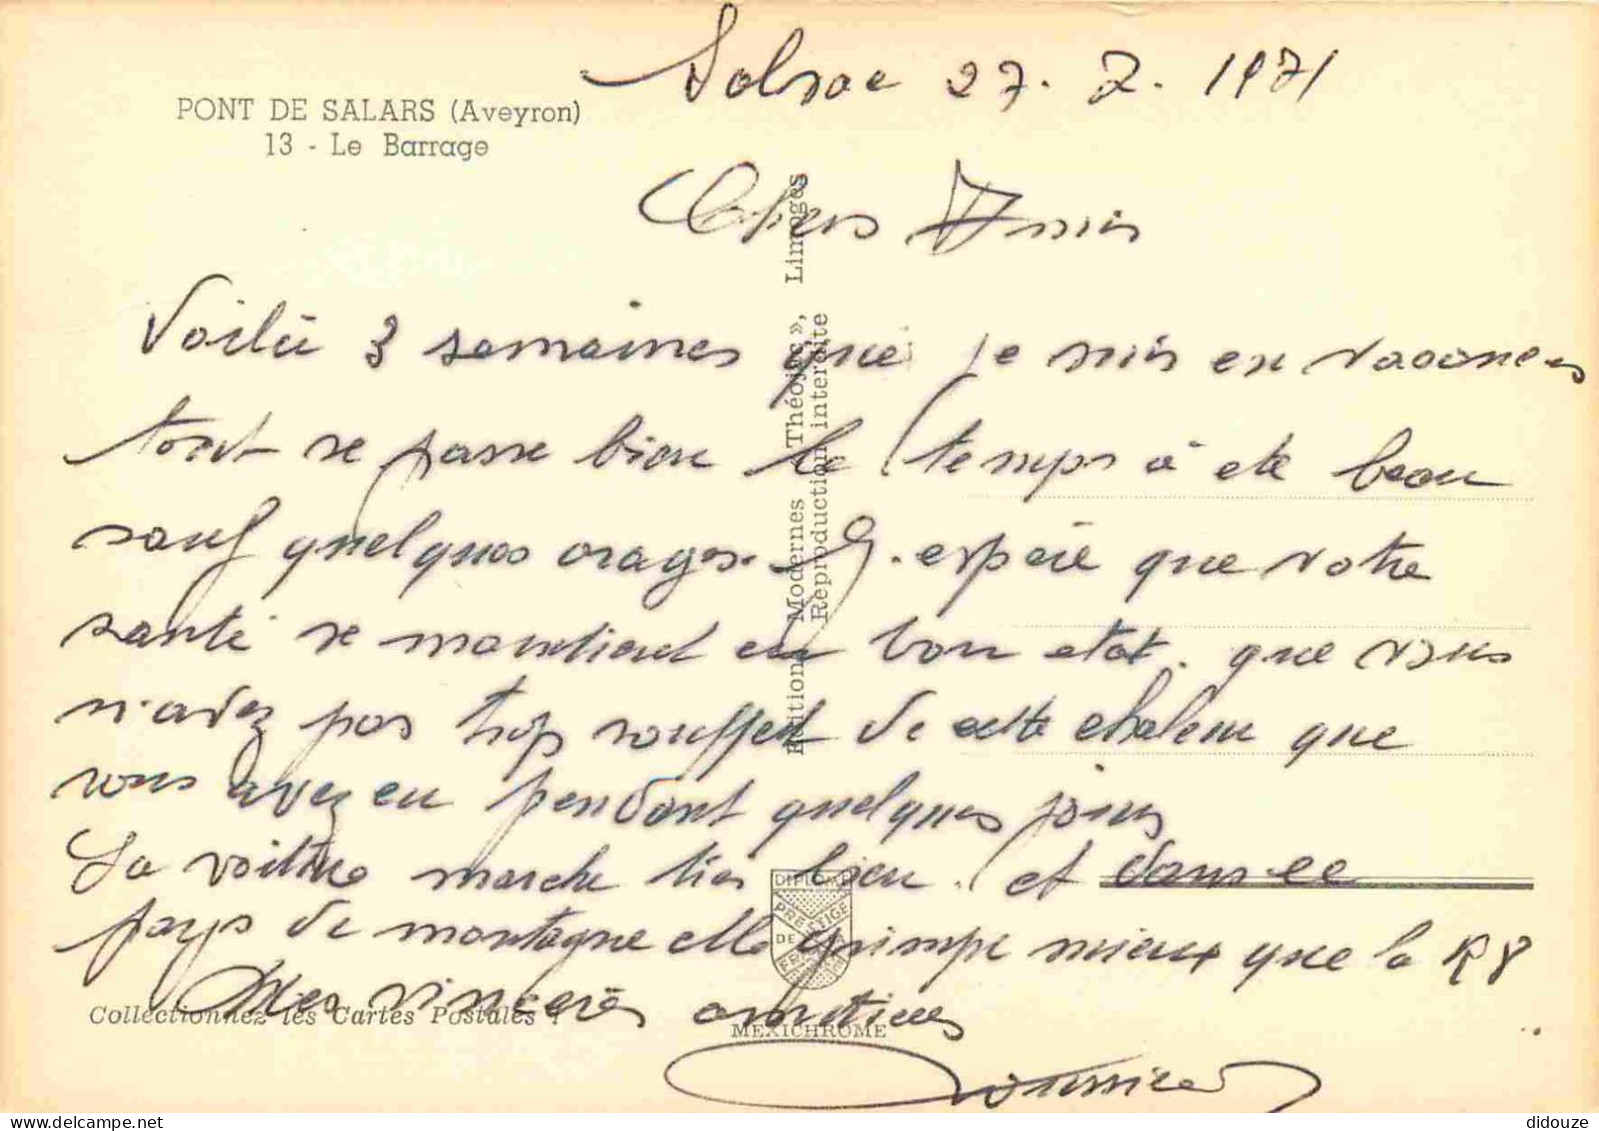 27. 7. 1971
PONT DE SALARS (Aveyron)
13 - Le Barrage
Chers Amis
Voilà 3 semaines que je suis en vacances
tout se passe bien le temps à été beau
sauf quelques orages. J. espère que votre
santé se maintient en bon etat. que vous
n'avez pas trop souffert de cette chaleur que
vous avez eu pendant quelques jours
La voiture marche très bien. et dans ce
pays de montagne elle grimpe mieux que la R8
Mes sincères amitiées
Editions Modernes « Théojac », Limoges
Reproduction interdite
DIPLOME
PRESTIGE
DE
Collectionnez les Cartes Postales !
MEXICHROME
delcampe.net
didouze